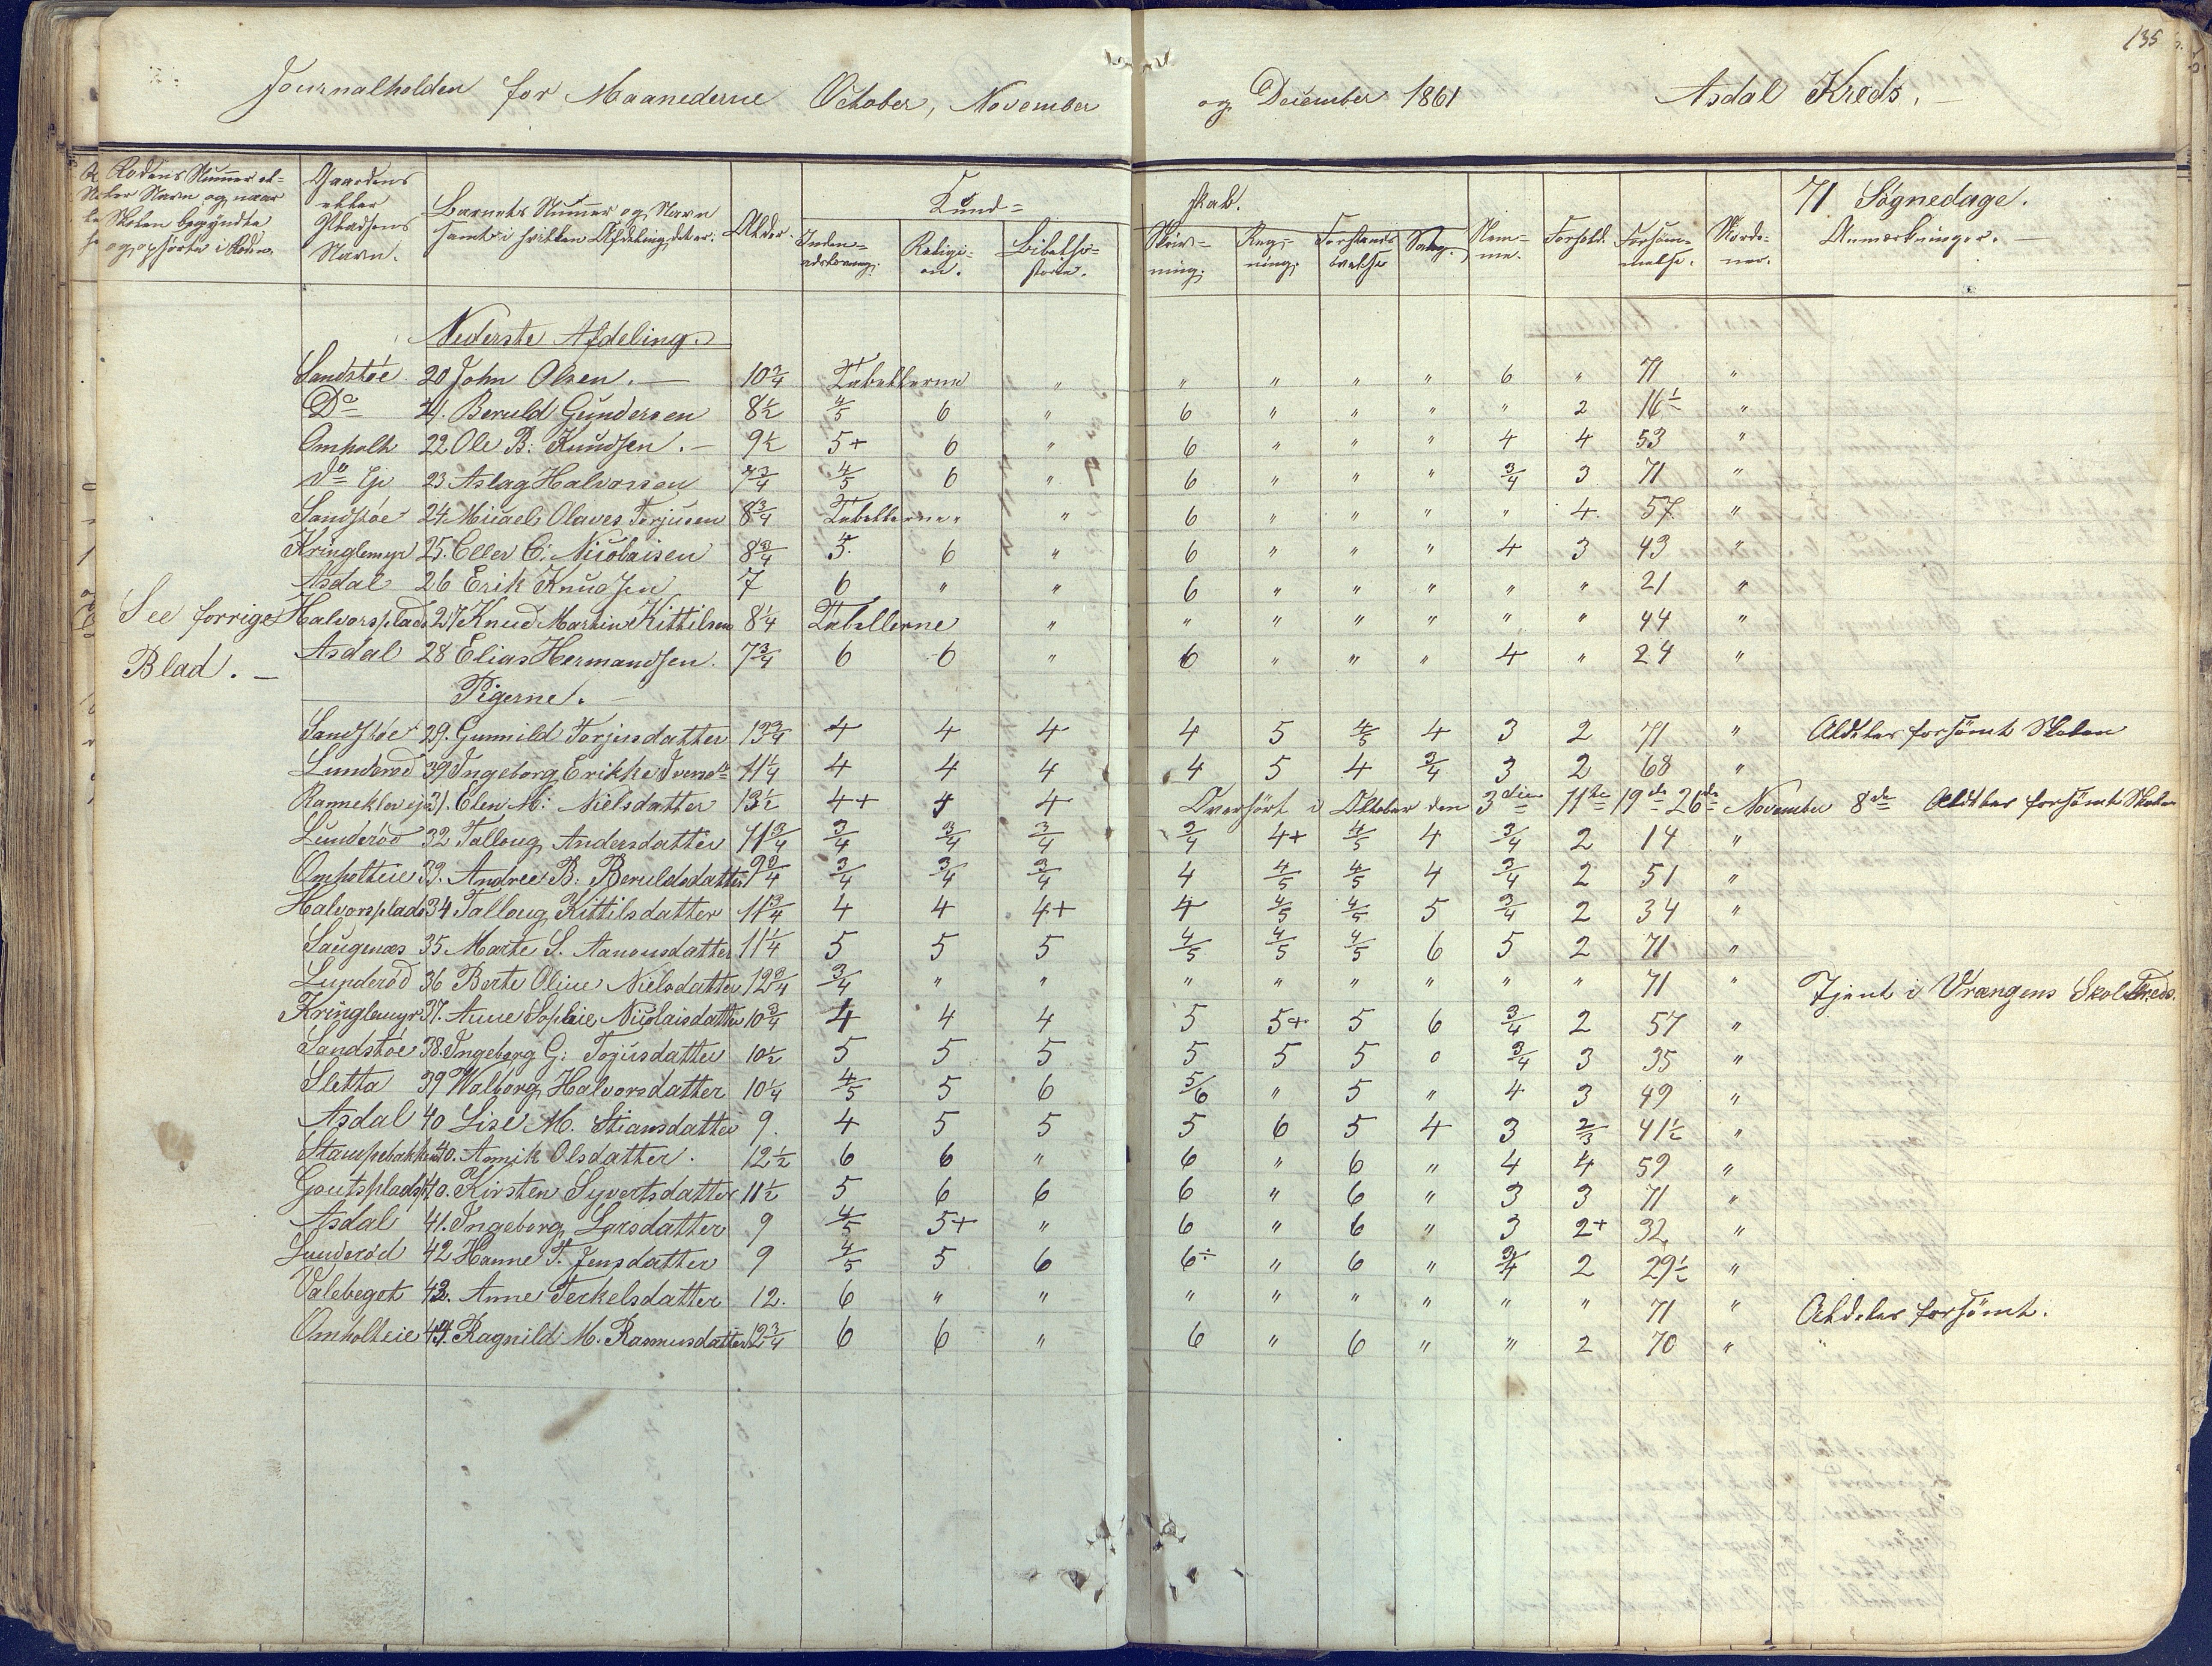 135
Journalholden for Maanederne October, November og December 1861 Asdal Kreds. —
Rodens Nummer el- Gaardens Kund= skab. 71 Søgnedage.
ler Navn og naar eller Barnets Nummer og Navn Alder. Inden= Religi= Bibelhi= Skriv= Reg= Forstands Sang. Nem= Forhold. Forsøm= Norde= Anmærkninger. —
Skolen begyndte Pladsens samt i hvilken Afdeling det er. adslæsning. on. storie. ning. ning. øvelse me. melse. ner.
og ophørte i Roden. Navn.
Nederste Afdeling.
Sandstøe 20 John Olsen. — 10 3/4 Tabellerne " " " " " 6 " 71 "
Do 21. Beruld Gundersen 8 1/2 4/5 6 " 6 " " " " 2 16 1/2 "
Omholt 22 Ole B: Knudsen. — 9 1/2 5+ 6 " 6 " " " 4 4 53 "
do Ei 23 Aslag Halvorsen 7 3/4 4/5 6 " 6 " " " 3/4 3 71 "
Sandstøe 24 Micael Olaves Terjusen 8 3/4 Tabellerne " 6 " " " " 4. 57. "
Kringlemyr 25. Eller C. Nicolaisen 8 3/4 5. 6 " 6 " " " 4 3 43 "
Asdal 26 Erik Knudsen 7 6 " " 6 " " " " " 21 "
See forrige Halvorsplads 27 Knud Martin Kittilsen 8 1/4 Tabellerne " " " " " " " 44 "
Blad. — Asdal 28 Elias Hermandsen. 7 3/4 6 6 " 6 " " " 4 " 24 "
Pigerne. —
Sandstøe 29. Gunnild Torjusdatter 13 3/4 4 4 4 4 5 4/5 4 3 2 71 " Aldeles forsømt Skolen
Lunderød 30 Ingeborg Erikke Iversd 11 1/4 4 4 4 4 5 4 3/4 3 2 68 "
Ranneklev ei 31. Elen M: Nielsdatter 13 1/2 4+ 4 4 Overhørt i Oktober den 3die 11te 19de 26de November 8de Aldeles forsømt Skolen
Lunderød 32 Tallaug Andersdatter 11 3/4 3/4 3/4 3/4 3/4 4+ 4/5 4 3/4 2 14 "
Omholteie 33. Andree B: Beruldsdatter 9 3/4 3/4 3/4 3/4 4 4/5 4/5 4 3/4 2 51 "
Halvorsplads 34 Tallaug Kittilsdatter 11 3/4 4 4 4+ 4 4/5 4/5 5 3/4 2 34 "
Saugenæs 35. Marte S. Aanonsdatter 11 1/4 5 5 5 4/5 4/5 4/5 6 5 2 71 "
Lunderød 36 Berte Oline Nielsdatter 12 3/4 3/4 " " " " " " " " 71 " Tjent i Vrængens Skolekreds.
Kringlemyr 37. Anne Sophie Nicolaisdatter 10 3/4 4 4 4 5 5+ 5 6 3/4 2 57 "
Sandstøe 38. Ingeborg G: Tojusdatter 10 1/2 5 5 5 5 5 5 0 3/4 3 35 "
Sletta 39 Walborg Halvorsdatter 10 1/4 4/5 5 6 5/6 " 5 " 4 3 49 "
Asdal 40 Lise M. Stiansdatter 9. 4 5 5 5 6 5 4 3 2/3 41 1/2 "
Stampebakken 40. Annik Olsdatter. 12 1/2 6 6 " 6 " 6 " 4 4 59 "
Goutsplads 40. Kirsten Syvertsdatter 11 1/2 5 6 6 6 " 6 " 3 3 71 "
Asdal 41. Ingeborg Larsdatter 9 4/5 5+ " 6 " 6 " 3 2+ 32 "
Lunderød 42 Hanne T. Jensdatter 9 4/5 5 6 6÷ " 6 " 3/4 2 29 1/2 "
Valebegot 43. Anne Terkelsdatter 12. 6 " " " " " " " " 71 " Aldeles forsømt.
Omholteie 44. Ragnild M. Rasmusdatter 12 3/4 6 6 " 6 " 6 " " 2 70 " "